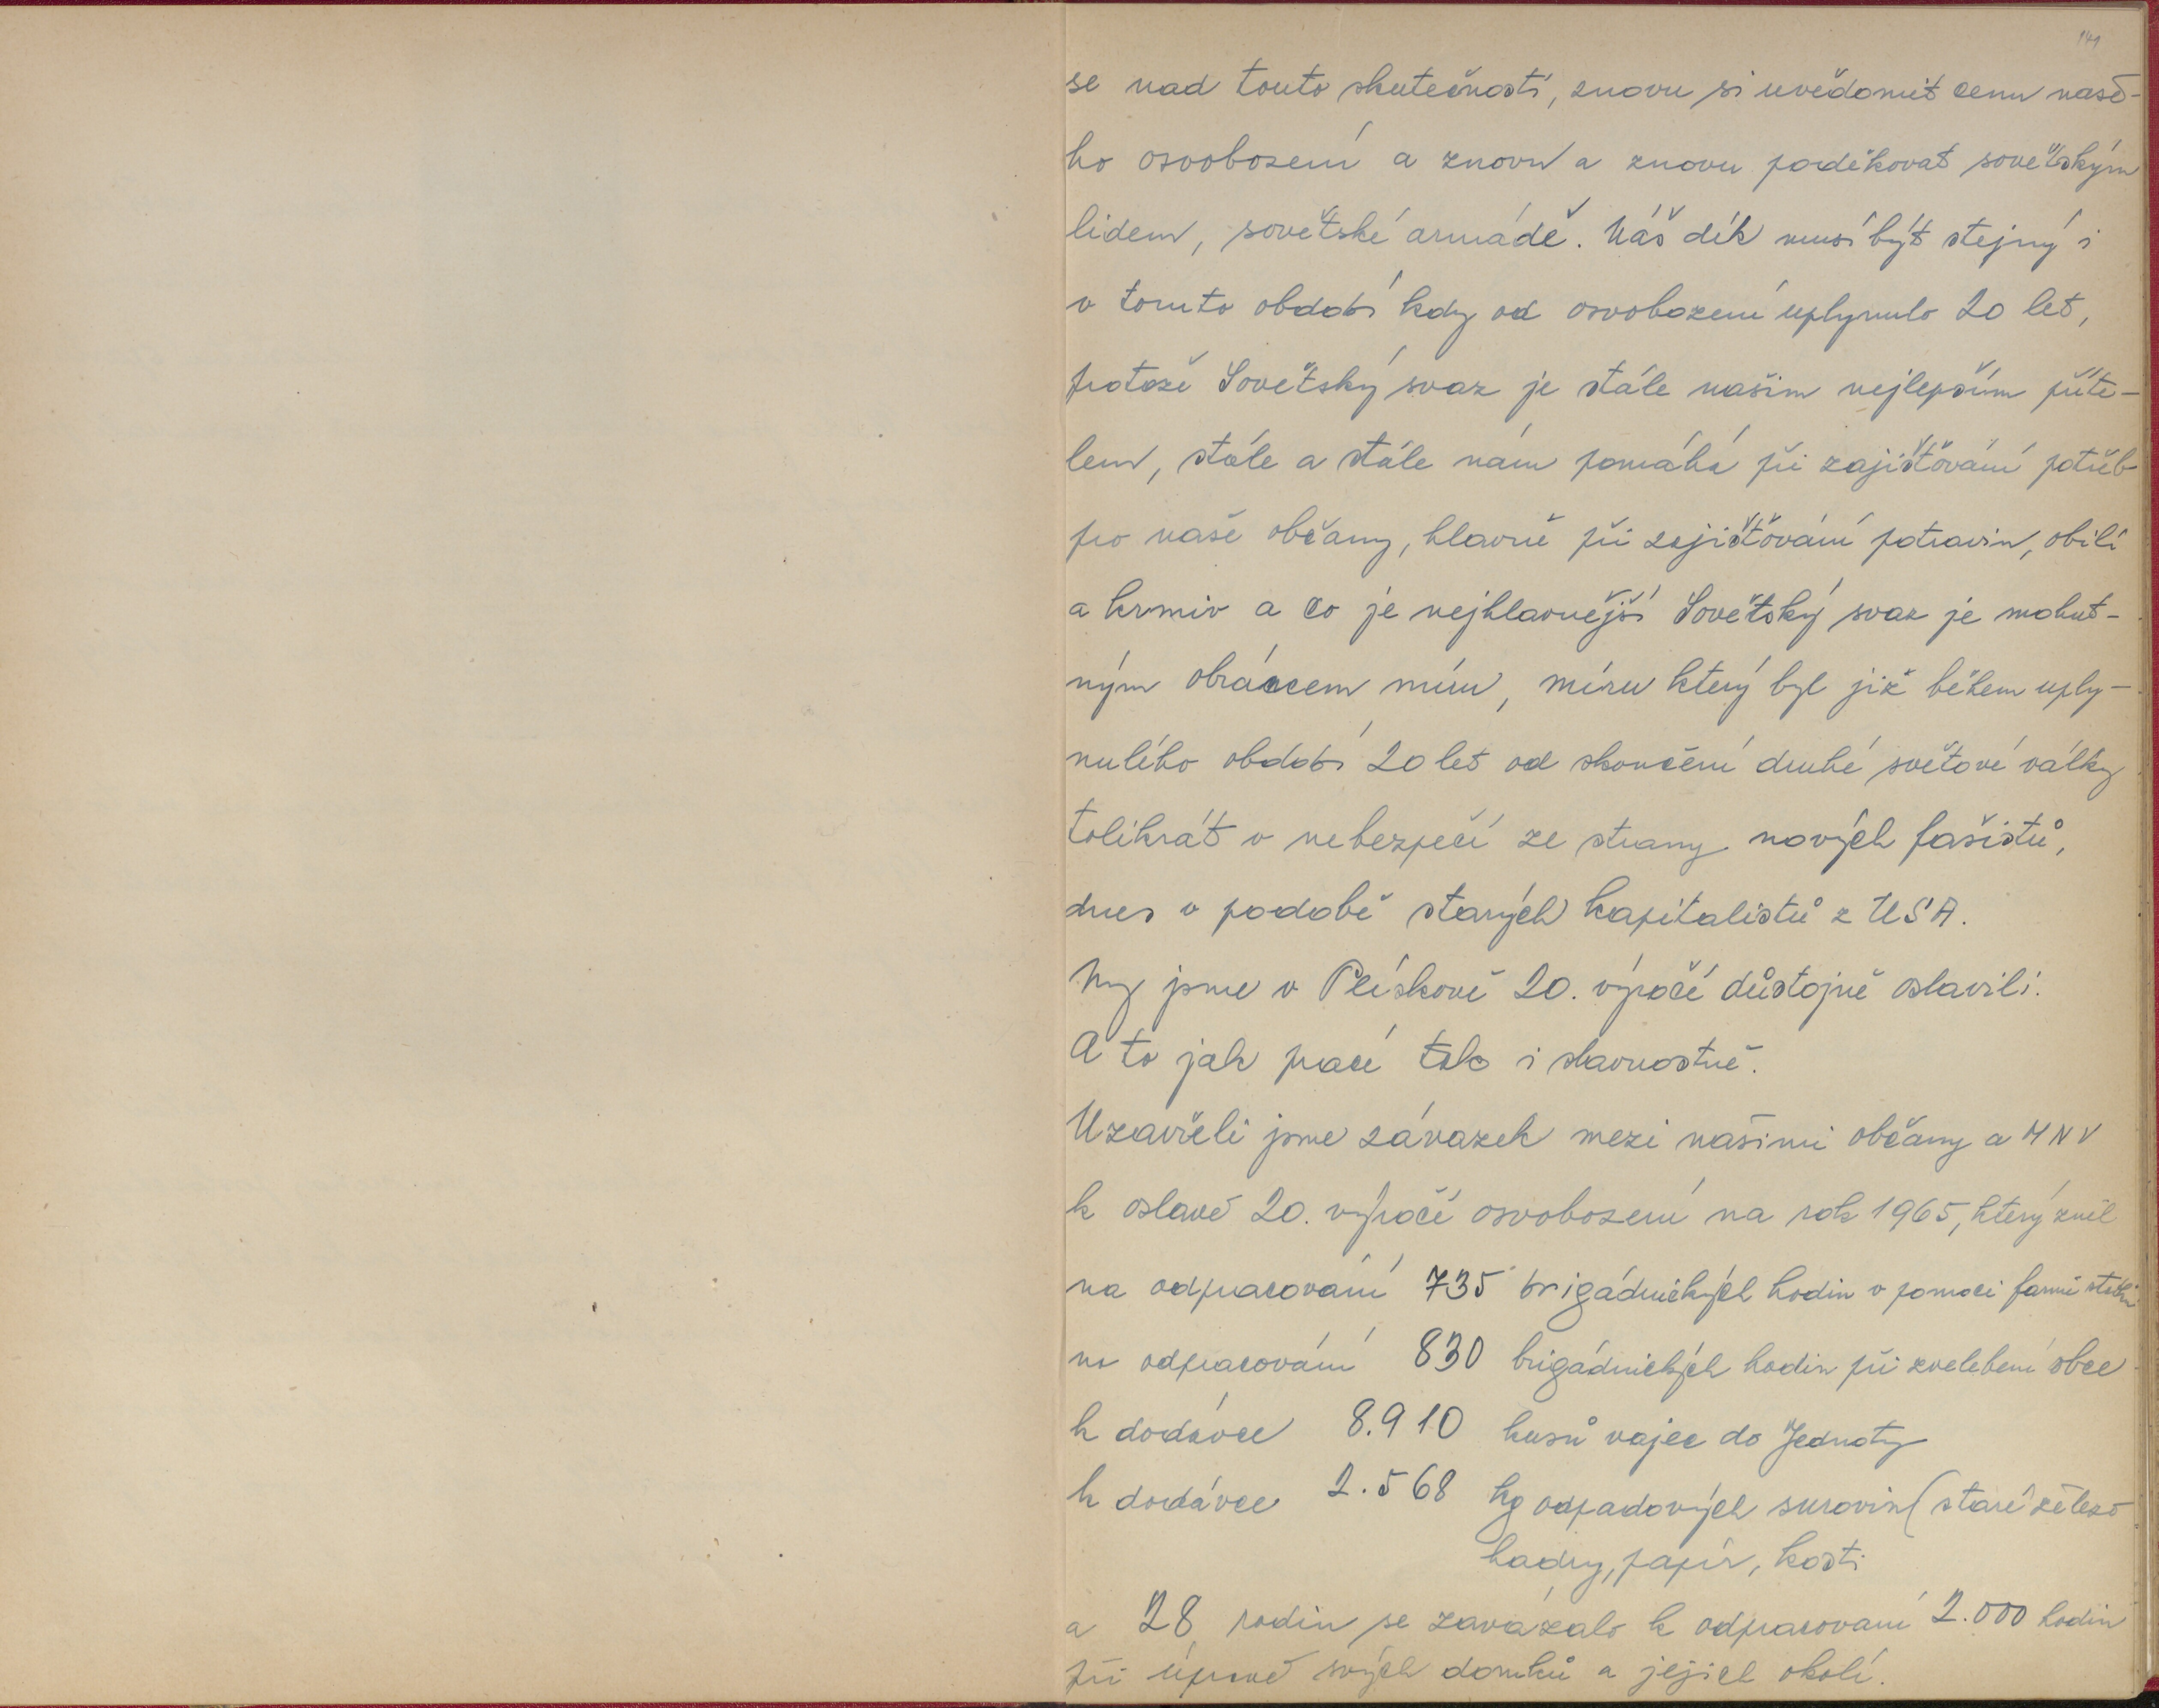 141
se nad touto skutečností, znovu si uvědomit cenu naše-
ho osvobození a znovu a znovu poděkovat sovětským
lidem, sovětské armádě. Náš dík musí být stejný i
v tomto období kdy od osvobození uplynulo 20 let,
protože Sovětský svaz je stále našim nejlepším příte-
lem, stále a stále nám pomáhá při zajišťování potřeb
pro naše občany, hlavně při zajišťování potravin, obilí
a krmiv a co je nejhlavnější Sovětský svaz je mohut-
ným obráncem míru, míru který byl již během uply-
nulého období 20 let od skončení druhé světové války
tolikrát v nebezpečí ze strany nových fašistů,
dnes v podobě starých kapitalistů z USA.
My jsme v Plískově 20. výročí důstojně oslavili.
A to jak prací tak i slavnostně.
Uzavřeli jsme závazek mezi našimi občany a MNV
k oslavě 20. výročí osvobození na rok 1965, který zněl
na odpracování 735 brigádnických hodin v pomoci farmě
na odpracování 830 brigádnických hodin při zvelebení obce
k dodávce 8.910 kusů vajec do Jednoty
k dodávce 2.568 kg odpadových surovin (staré železo
hadry, papír, kosti
a 28 rodin se zavázalo k odpracovaní 2.000 hodin
při úpravě svých domků a jejich okolí.